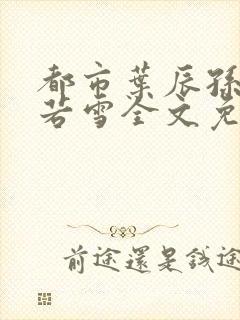 都市葉辰孫
若雪全文免
前途還是錢途